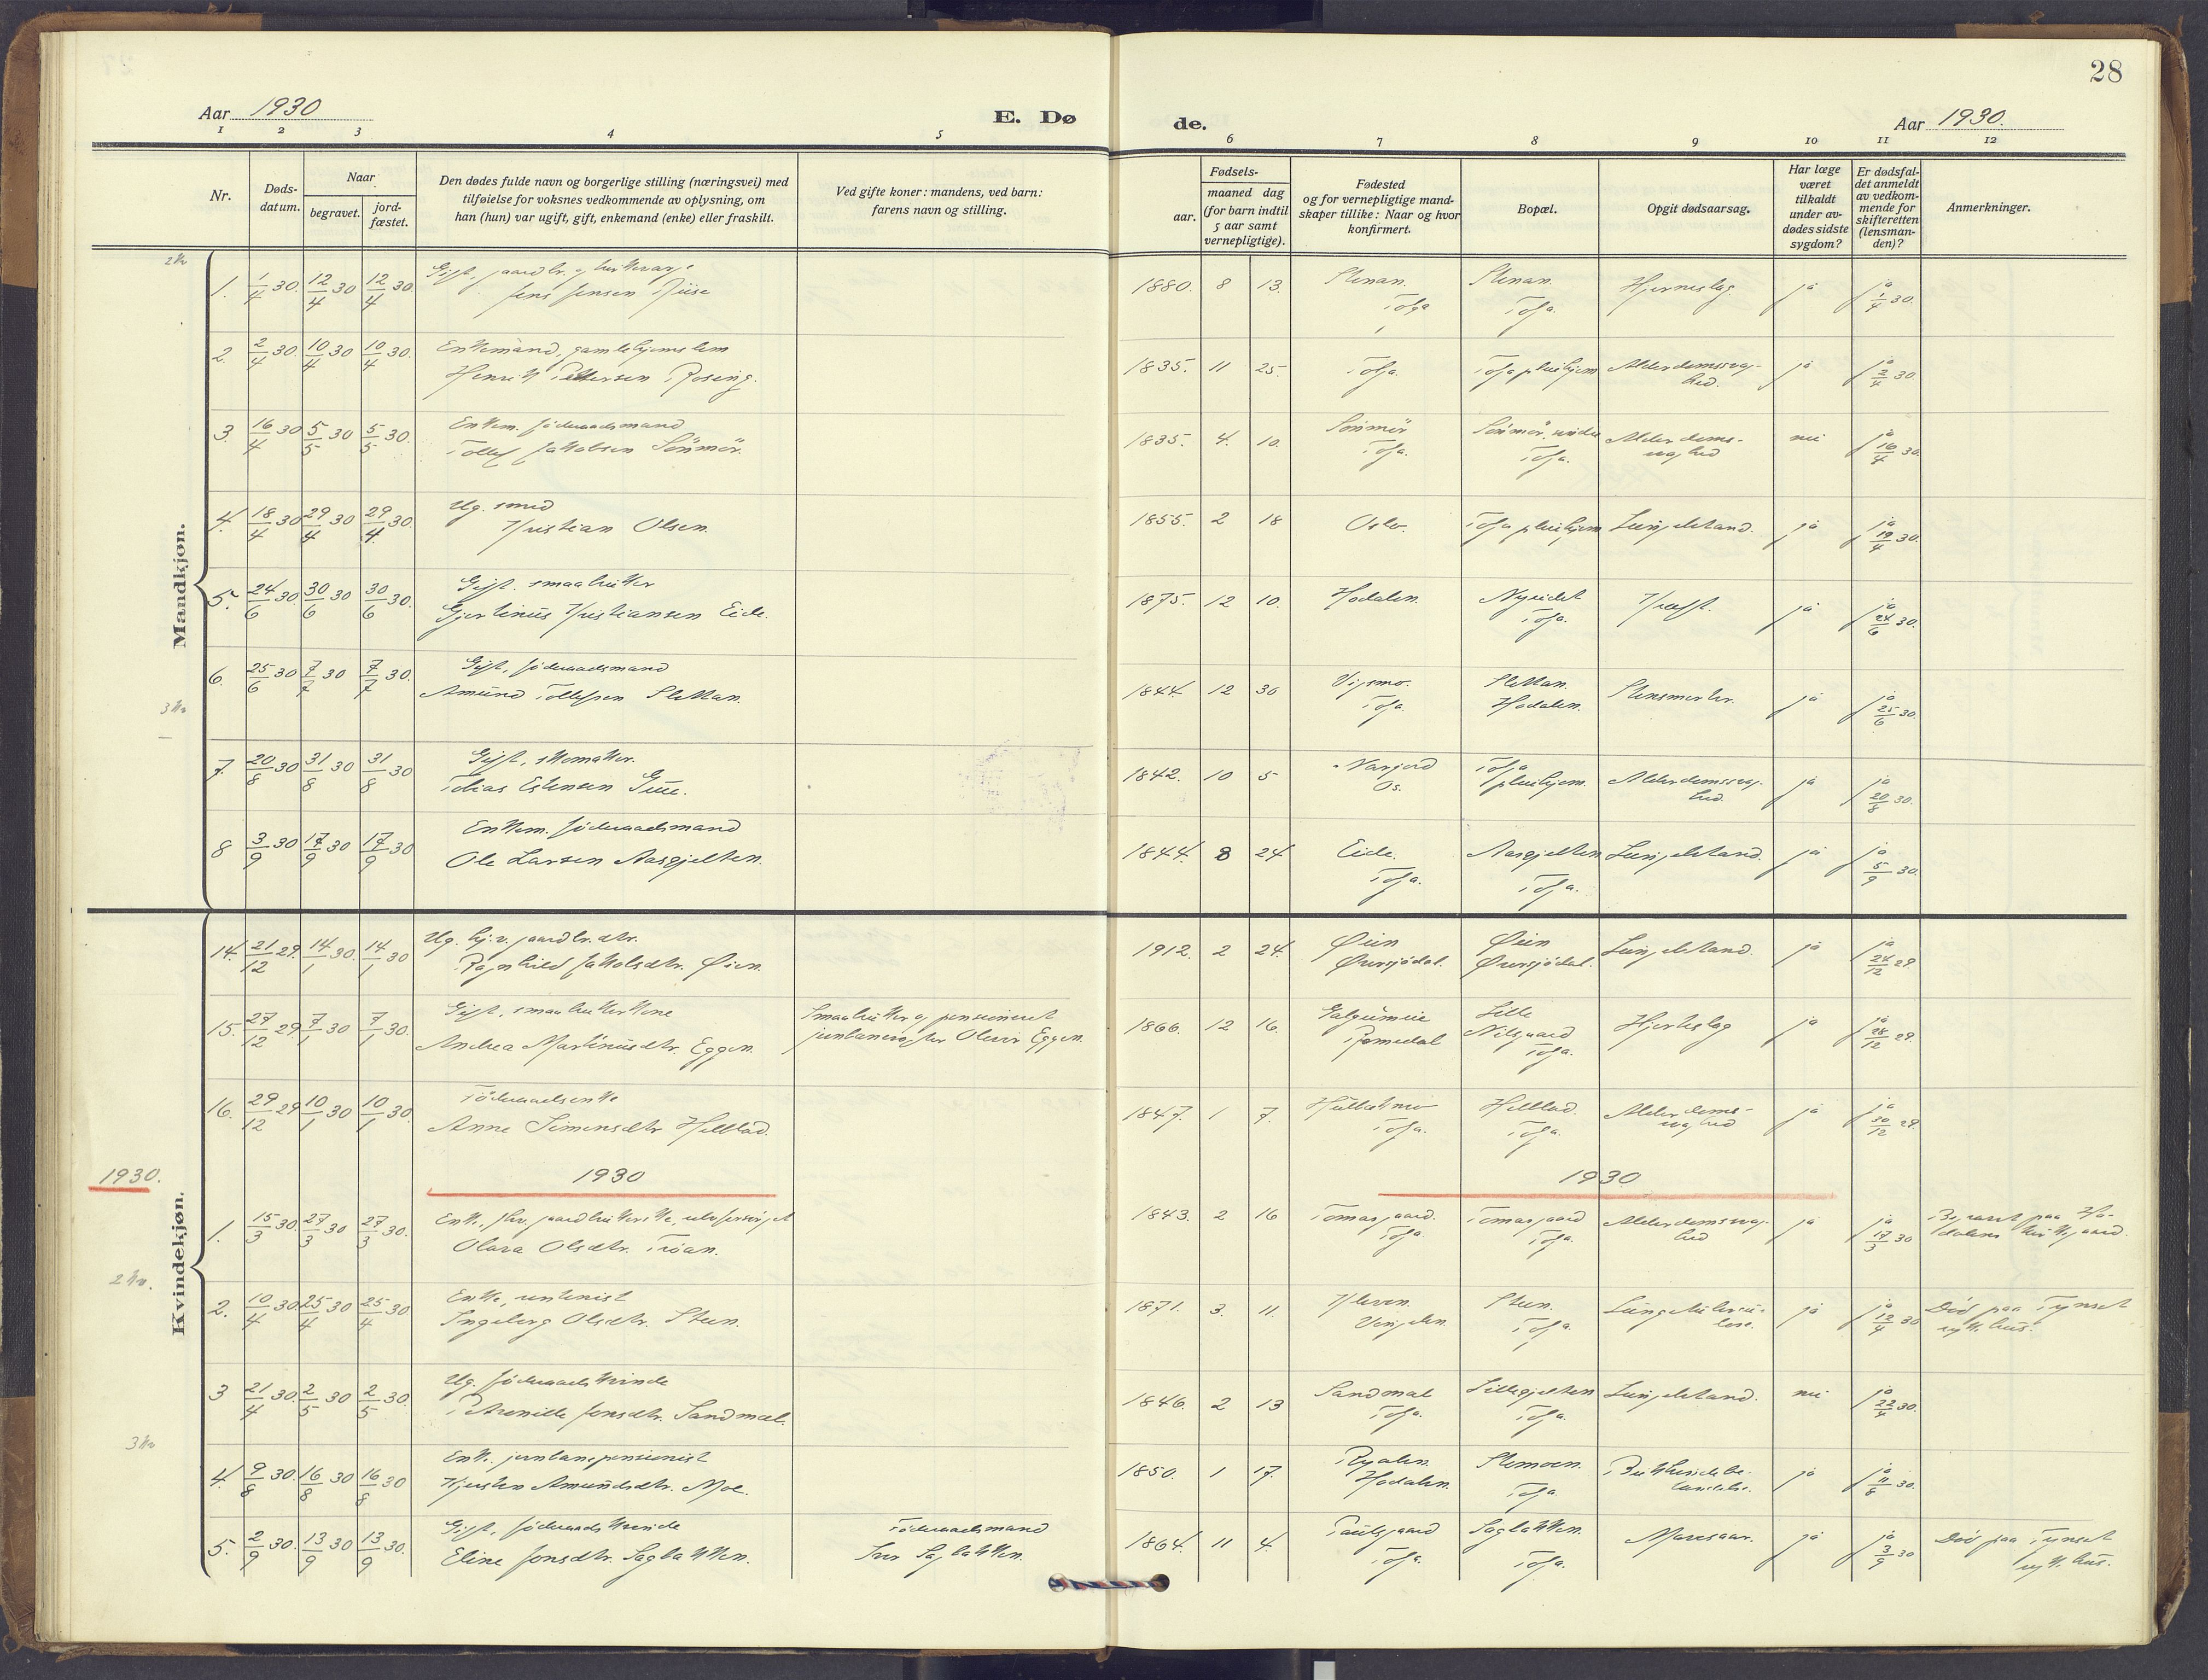 28
Aar 1930
E. Dø
de.
Aar 1930.
1 2 3 4 5 6 7 8 9 10 11 12
Nr.
Døds-
datum.
Naar
begravet.
jord-
fæstet.
Den dødes fulde navn og borgerlige stilling (næringsvei) med
tilføielse for voksnes vedkommende av oplysning, om
han (hun) var ugift, gift, enkemand (enke) eller fraskilt.
Ved gifte koner: mandens, ved barn:
farens navn og stilling.
Fødsels-
aar.
maaned dag
(for barn indtil
5 aar samt
vernepligtige).
Fødested
og for vernepligtige mand-
skaper tillike: Naar og hvor
konfirmert.
Bopæl.
Opgit dødsaarsag.
Har læge
været
tilkaldt
under av-
dødes sidste
sygdom?
Er dødsfal-
det anmeldt
av vedkom-
mende for
skifteretten
(lensman-
den)?
Anmerkninger.
Mandkjøn.
1. 1/4 30. 12/4 30 12/4 30 Gift, gaardbr.
Jens Jensen Riise 1880. 8 13. Stenan. Tolga Stenan. Tolga. Hjerneslag ja ja 1/4 30.
2. 2/4 30. 10/4 30 10/4 30. Enkemand, gamlehjemslem
Henrik Pettersen Rosing. 1835. 11 25. Tolga. Tolga pleiehjem Alderdomssvag-
hed. ja ja 2/4 30.
3. 16/4 30 5/5 30 5/5 30. Enkem. föderaadsmand
Tollef Jakobsen Sönmör. 1835. 4. 10. Sönmör Tolga. Sönmör Tolga. Alderdoms-
svaghed nei ja 16/4 30.
4. 18/4 30 29/4 30 29/4 30. Ug. smed
Kristian Olsen. 1855. 2 18 Oslo. Tolga pleiehjem Lungebetænd. ja ja 19/4 30.
5. 24/6 30. 30/6 30 30/6 30. Gift. smaabruker
Gjertinus Kristiansen Eide. 1875. 12 10. Hodalen. Nyeidet Tolga. Kræft. ja ja 24/6 30.
6. 25/6 30 7/7 30 7/7 30. Gift, föderaadsmand
Amund Tollefsen Sletten. 1844. 12 30 Vigsmo. Tolga. Sletten. Hodalen. ja ja 25/6 30.
7. 20/8 30 31/8 30 31/8 30 Gift, skomaker.
Tobias Estensen 1842. 10 5 Narjord Os. Tolga pleiehjem. Alderdomssvag-
hed. ja ja 20/8 30.
8 3/9 30 17/9 30 17/9 30 Enkem. föderaadsmand
Ole Larsen Aasgjelten. 1844. 8 24 Eide. Tolga. Aasgjelten Tolga. Lungebetænd. ja ja 5/9 30.
Kvindekjøn.
14. 21/12 29. 14/1 30. 14/1 30 Ug. hj.v. gaardbr. dtr.
Ragnhild Jakobsdtr. Øien. 1912. 2 24. Øien Øversjødal. Øien Øversjødal. Lungebetænd. ja ja 24/12 29.
15. 27/12 29. 7/1 30 7/1 30. Gift, smaabrukerkone
Andrea Martinusdtr. Eggen. Smaabruker og pensioneret
Oluf Eggen. 1866. 12 16. Romedal Lille Nilsgaard Tolga. Hjerteslag ja ja 28/12 29.
16. 29/12 29 10/1 30 10/1 30. Föderaadsenke
Anne Simensdtr. 1847. 1 7. Tolga. Tolga. Alderdoms-
svaghed ja ja 30/12 29.
1930. 1930 1930
1. 15/3 30. 27/3 30 27/3 30. Enke,
Olava Olsdtr. Tröan. 1843. 2 16 Tomasgaard. Tolga. Tomasgaard Tolga. Alderdomssvag-
hed ja ja 17/3 30 Begravet paa Ho-
dalens kirkegaard.
2. 10/4 30. 25/4 30 25/4 30 Enke, rentenist
Ingeborg Olsdtr. Steen. 1871. 3. 11. Kleven. Vingelen. Steen. Tolga. Lungetuberku-
lose. ja ja 12/4 30 Död paa Tynset
sykehus.
3 21/4 30. 2/5 30 2/5 30. Ug. föderaadskvinde
Petronille Jonsdtr. Sandmæl. 1846. 2 13 Sandmæl Tolga. Lillegjelten Tolga. Lungebetænd. nei ja 22/4 30.
4. 9/8 30. 16/8 30 16/8 30 Enke. jernbanepensionist
Kjersten Amundsdtr. Moe. 1850. 1 17. Ryalen. Hodalen. Stemoen. Tolga ja ja 11/8 30.
5. 2/9 30. 13/9 30 13/9 30. Gift, föderaadskvinde
Eline Jonsdtr. Sagbakken. Föderaadsmand
Iver Sagbakken. 1864. 11 4. Paulsgaard Tolga. Sagbakken. Tolga. Mavesaar. ja ja 3/9 30 Död paa Tynset
sykehus.